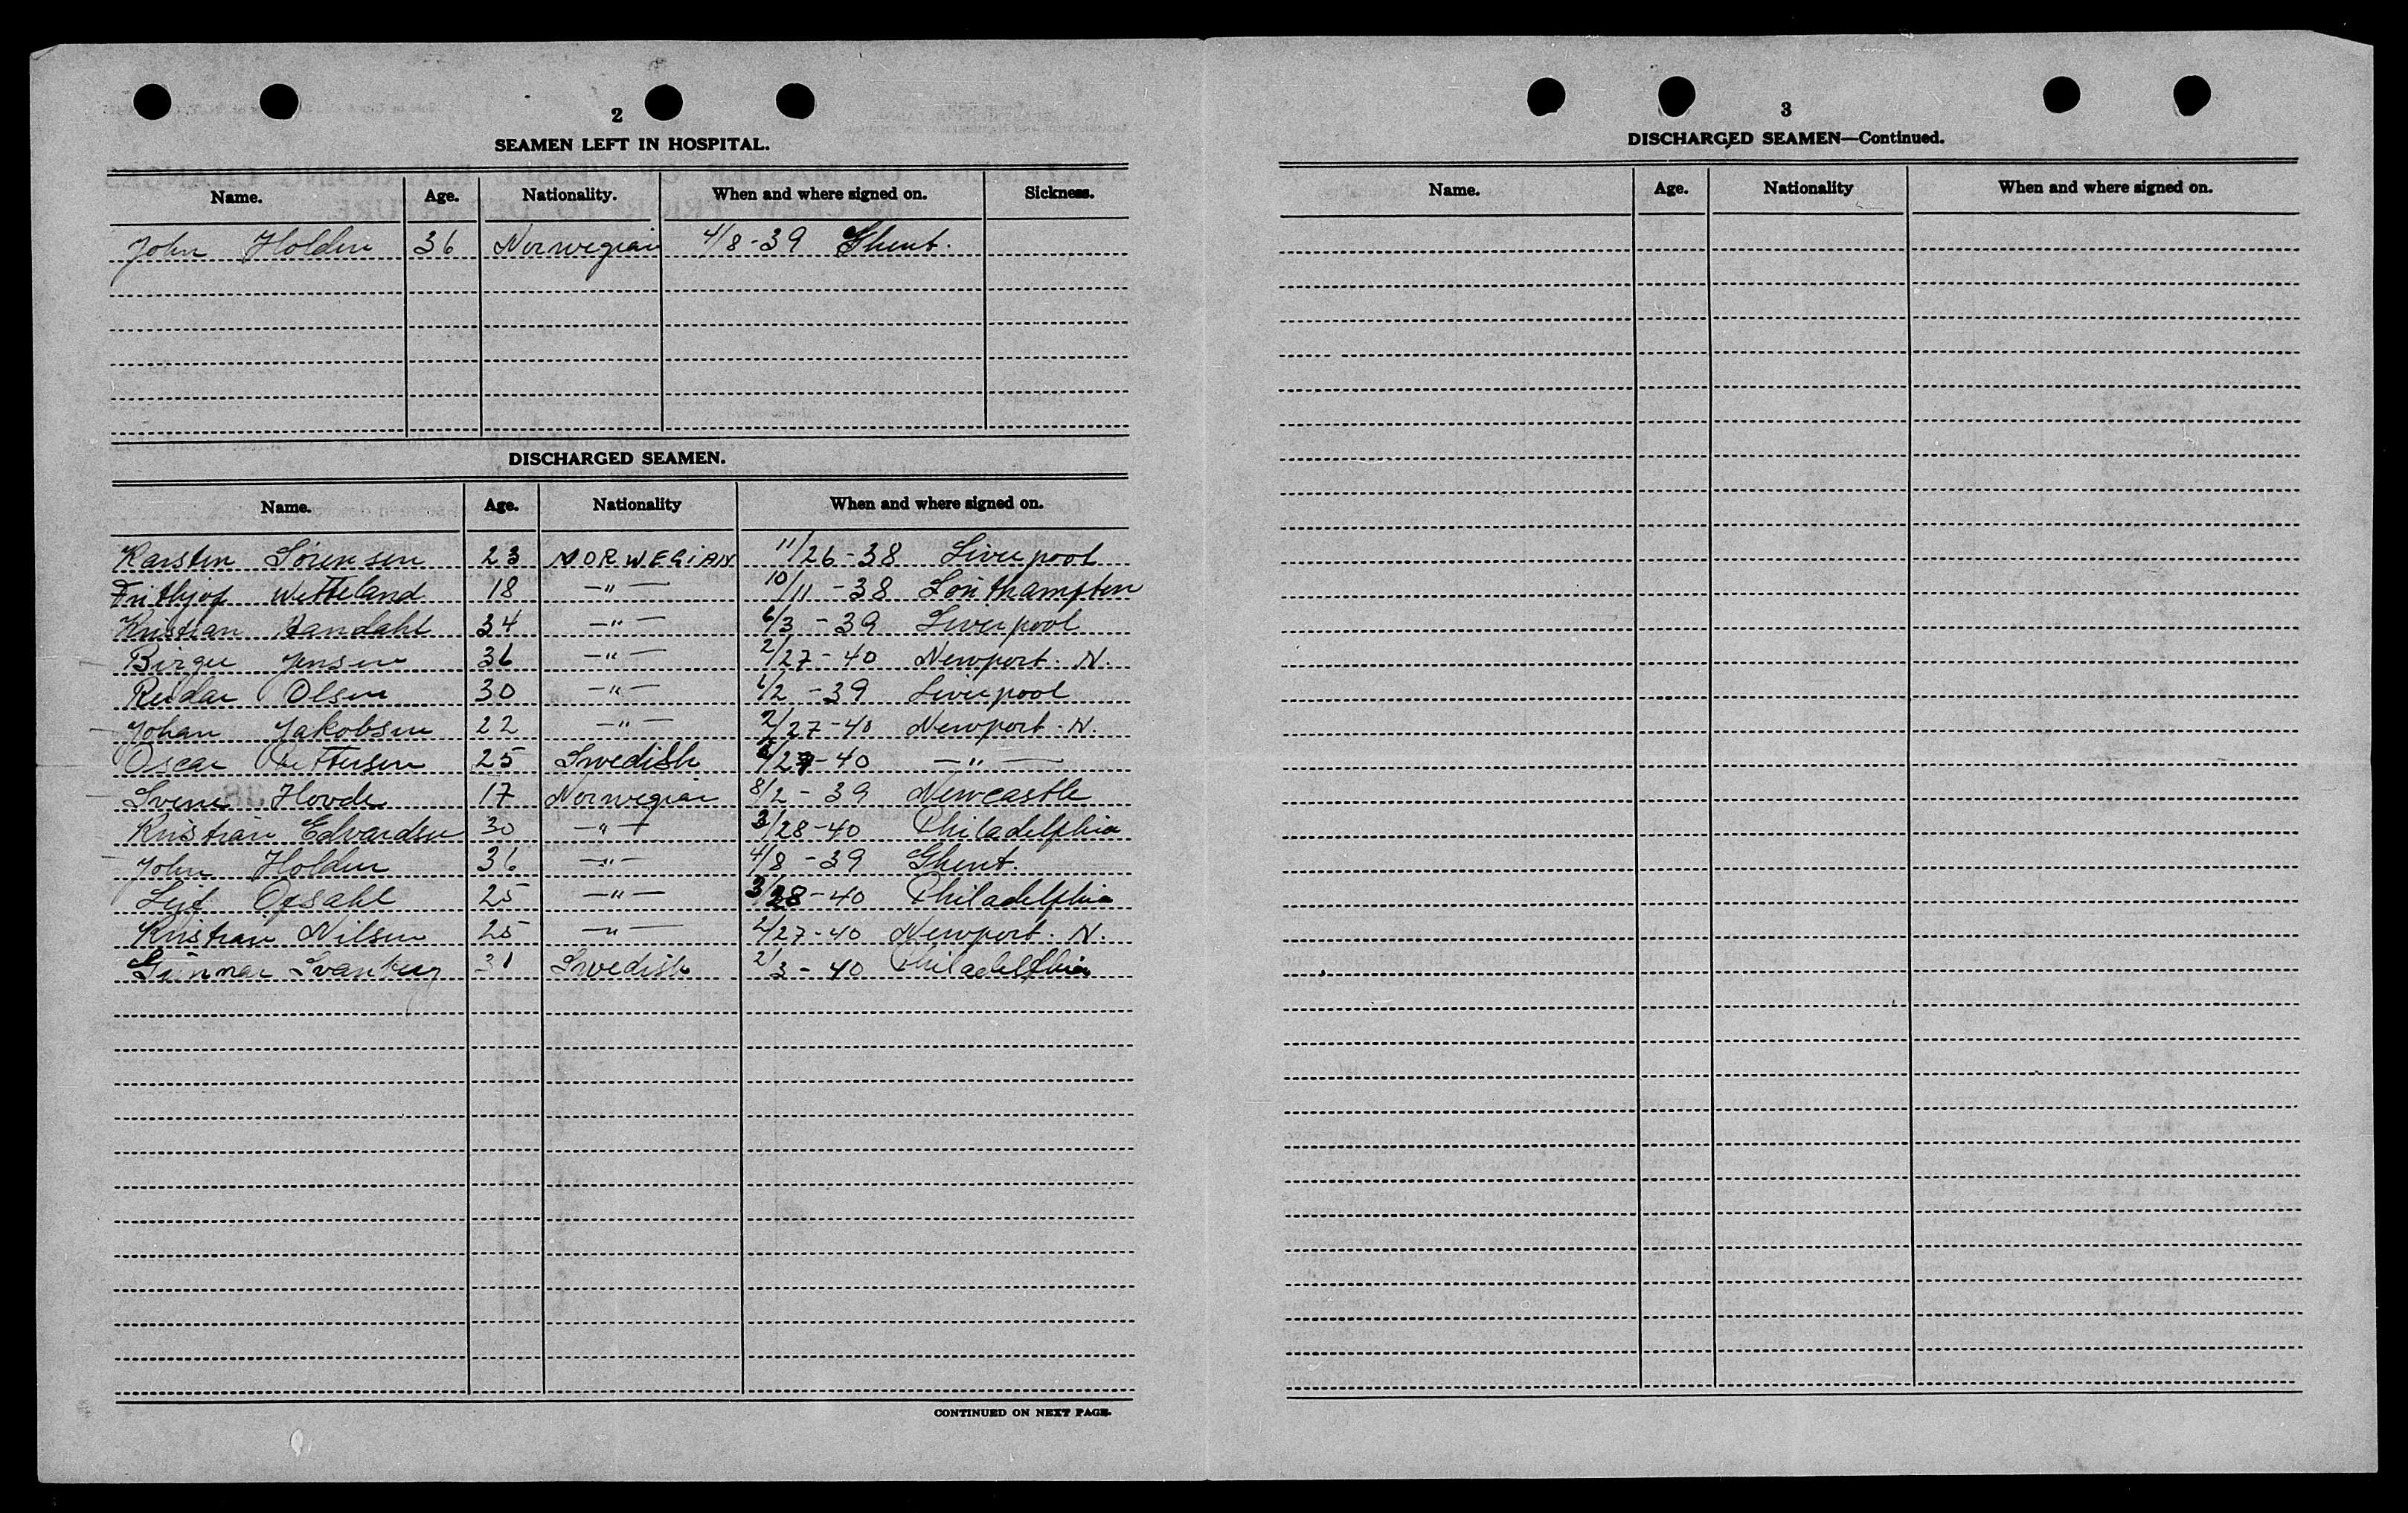 2
SEAMEN LEFT IN HOSPITAL.
Name. Age. Nationality. When and where signed on. Sickness.
John Holden 36 Norwegian 4/8-39 Ghent.
DISCHARGED SEAMEN.
Name. Age. Nationality When and where signed on.
Karsten Sörensen 23 NORWEGIAN 11/26-38 Liverpool
Frithjof Wetteland 18 —"— 10/11-38 Southampton
Kristian Sandahl 34 —"— 6/3-39 Liverpool
Birger Jensen 36 —"— 2/27-40 Newport. N.
Reidar Olsen 30 —"— 6/2-39 Liverpool
Johan Jakobsen 22 —"— 2/27-40 Newport. N.
Oscar Pettersen 25 Swedish 2/27-40 —"—
Sverre Hovde 17 Norwegian 8/2-39 Newcastle
Kristian Edvardsen 30 —"— 3/28-40 Philadelphia
John Holden 36 —"— 4/8-39 Ghent.
Leif Opsahl 25 —"— 3/28-40 Philadelphia
Kristian Nilsen 25 —"— 2/27-40 Newport. N.
Gunnar Svanberg 31 Swedish 2/3-40 Philadelphia
CONTINUED ON NEXT PAGE.
3
DISCHARGED SEAMEN—Continued.
Name. Age. Nationality When and where signed on.